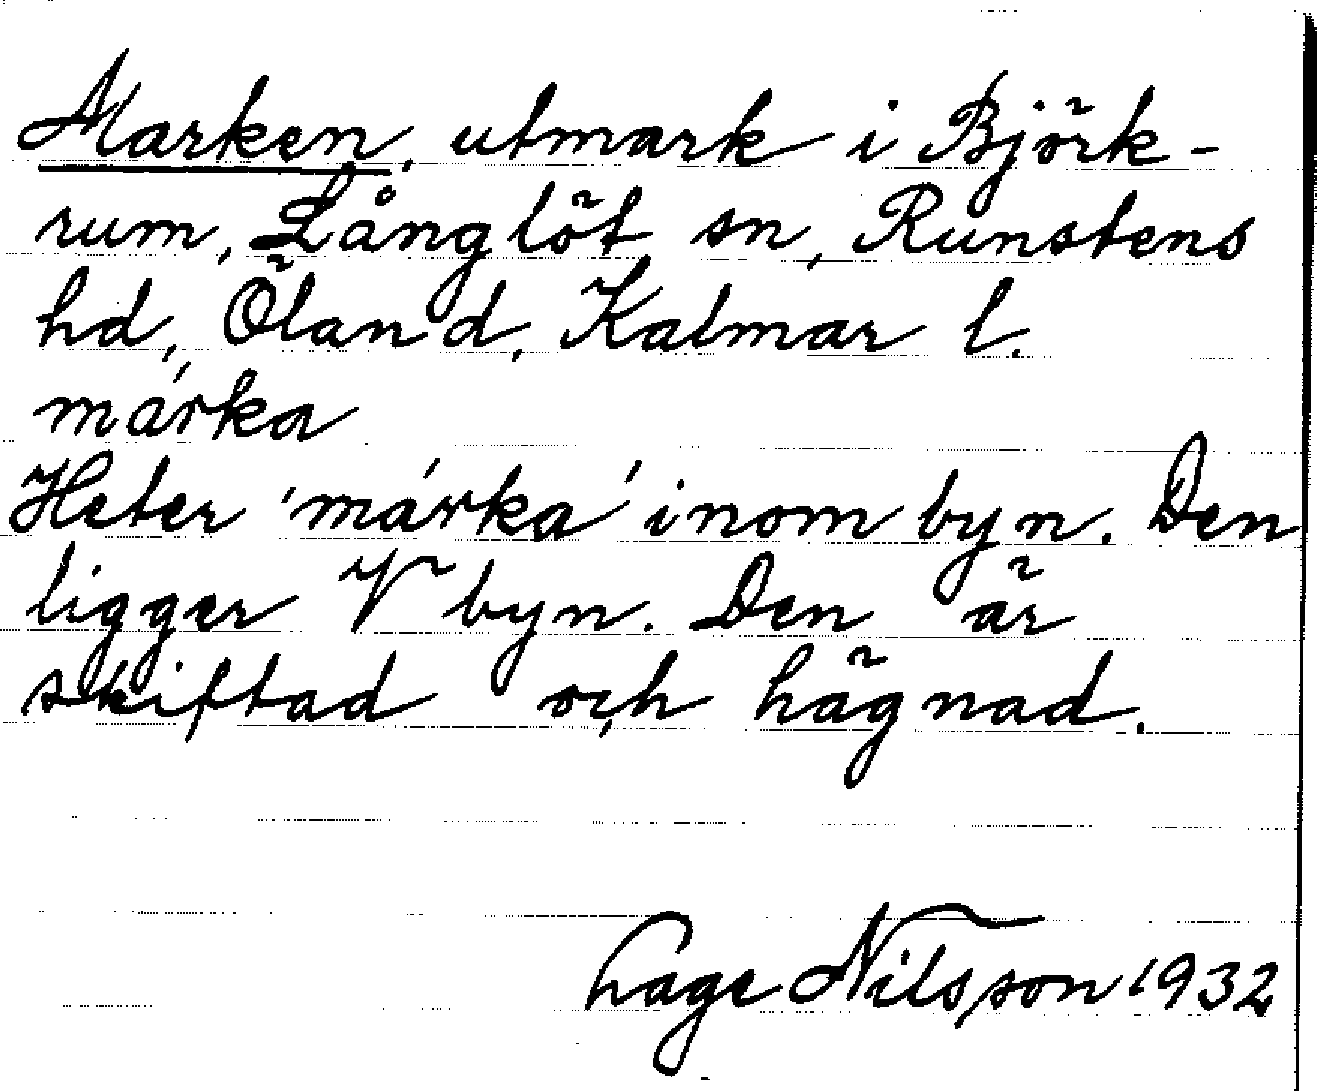 Marken, utmark i Björk-
rum, Långlöt sn, Runstens
hd, Öland, Kalmar l.
márka
Heter 'márka' inom byn. Den
ligger V byn. Den är
skiftad och hägnad.
Lage Nilsson 1932